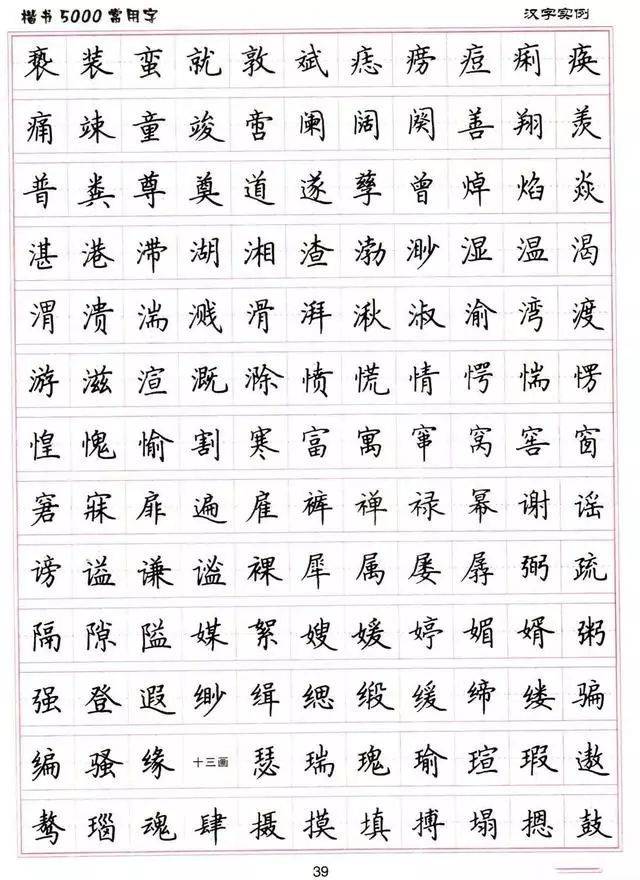 楷书5000常用字 汉字实例
亵 装 蛮 就 敦 斌 痣 痨 痘 痢 痪
痛 竦 童 竣 啻 阑 阔 阕 善 翔 羡
普 粪 尊 奠 道 遂 孳 曾 焯 焰 焱
湛 港 滞 湖 湘 渣 渤 渺 湿 温 渴
渭 溃 湍 溅 滑 湃 湫 溆 渝 湾 渡
游 滋 渲 溉 滁 愤 慌 惰 愕 惴 愣
惶 愧 愉 割 寒 富 寓 窜 窝 窖 窗
窘 寐 扉 遍 雇 裤 禅 禄 幂 谢 谣
谤 谥 谦 谧 裸 犀 属 屡 孱 弼 疏
隔 隙 隘 媒 絮 嫂 媛 婷 媚 婿 粥
强 登 遐 缈 缉 缌 缎 缓 缔 缕 骗
编 骚 缘 十三画 瑟 瑞 瑰 瑜 瑄 瑕 遨
骜 瑙 魂 肆 摄 摸 填 搏 塌 摁 鼓
39